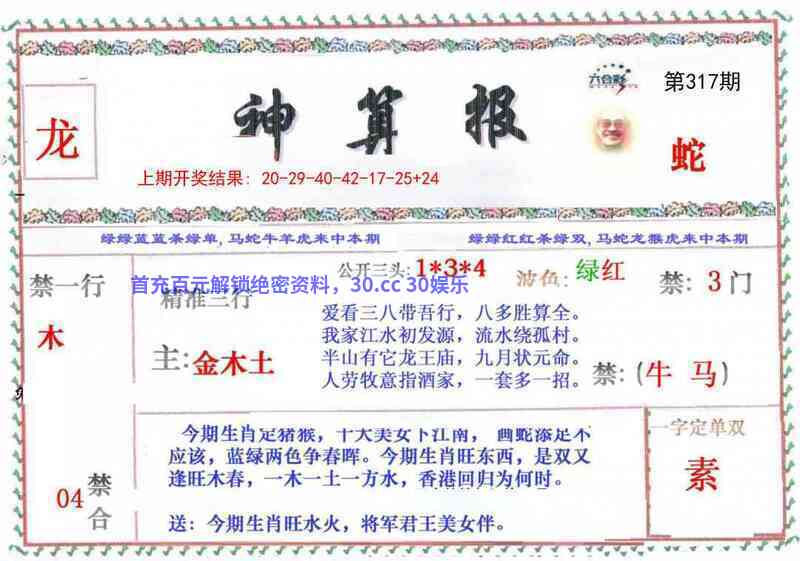 六合彩
第317期
龙
神算报
蛇
上期开奖结果: 20-29-40-42-17-25+24
绿绿蓝蓝杀绿单, 马蛇牛羊虎来中本期
绿绿红红杀绿双, 马蛇龙猴虎来中本期
禁一行
木
公开三头: 1*3*4
波色: 绿红
禁: 3门
首充百元解锁绝密资料，30.cc 30娱乐
精准三行
主: 金木土
爱看三八带吾行，八多胜算全。
我家江水初发源，流水绕孤村。
半山有它龙王庙，九月状元命。
人劳牧意指酒家，一套多一招。
禁: (牛 马)
04
禁合
今期生肖定猪猴，十大美女下江南，画蛇添足不
应该，蓝绿两色争春晖。今期生肖旺东西，是双又
逢旺木春，一木一土一方水，香港回归为何时。
送: 今期生肖旺水火，将军君王美女伴。
一字定单双
素